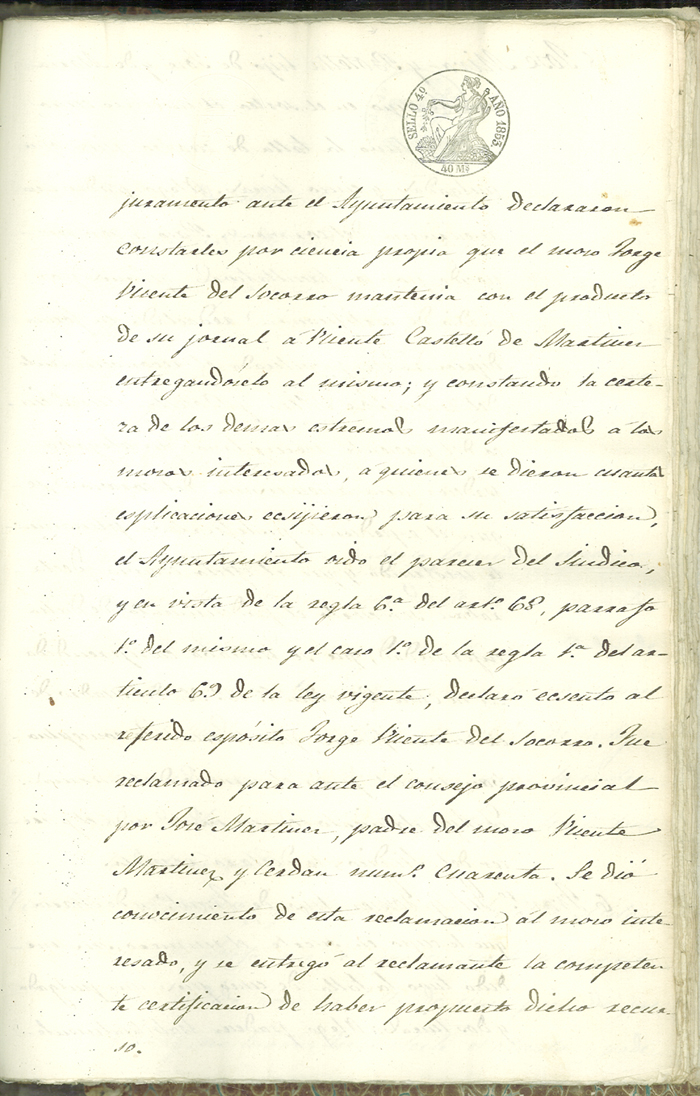 SELLO 4º AÑO 1853.
40 Ms
juramento ante el Ayuntamiento declararon
constarles por ciencia propia que el moro Jorge
Vicente del Socorro mantenia con el producto
de su jornal á Vicente Castelló de Martinez
entregandóselo al mismo; y constando la certe-
za de los demas estremos manifestados á los
moros interesados, a quienes se dieron cuantas
esplicaciones ecsijieron para su satisfaccion,
el Ayuntamiento oido el parecer del Sindico,
y en vista de la regla 6.ª del artº. 68, parrafo
1º. del mismo y el caso 1º. de la regla 1.ª del ar-
ticulo 69 de la ley vigente, declaró ecsento al
referido espósito Jorge Vicente del Socorro. Fue
reclamado para ante el consejo provincial
por José Martinez, padre del moro Vicente
Martinez y Cerdan numº. cuarenta. Se dió
conocimiento de esta reclamacion al moro inte-
resado, y se entregó al reclamante la competen
te certificacion de haber propuesto dicho recur-
so.